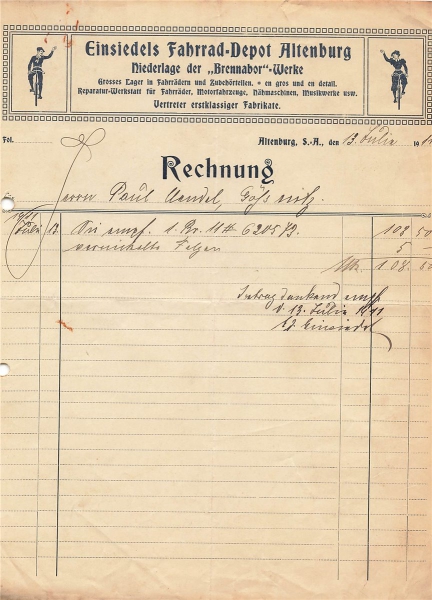 Einsiedels Fahrrad-Depot Altenburg
Niederlage der „Brennabor"-Werke
Grosses Lager in Fahrrädern und Zubehörteilen. * en gros und en detail.
Reparatur-Werkstatt für Fahrräder, Motorfahrzeuge, Nähmaschinen, Musikwerke usw.
Vertreter erstklassiger Fabrikate.
Fol.
Altenburg, S.-A., den 13. Julie 191
Rechnung
für Herrn Paul Mendel, Gößnitz.
1911
Julie 13. empf. 1. Br. 11# 620573. 103 50
vernickelte Felgen 5 -
Mk. 108. 50
Betrag dankend empf.
d. 13. Julie 1911
Einsiedel